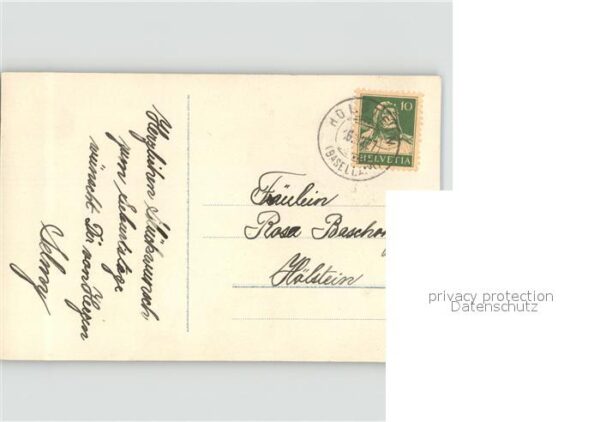 Herzlichen Glückwunsch
zum Geburtstage
wünscht Dir von Herzen
Selmy
HÖLSTEIN
(BASELLAND)
10
HELVETIA
Fräulein
Rosa Baschon
Hölstein
privacy protection
Datenschutz